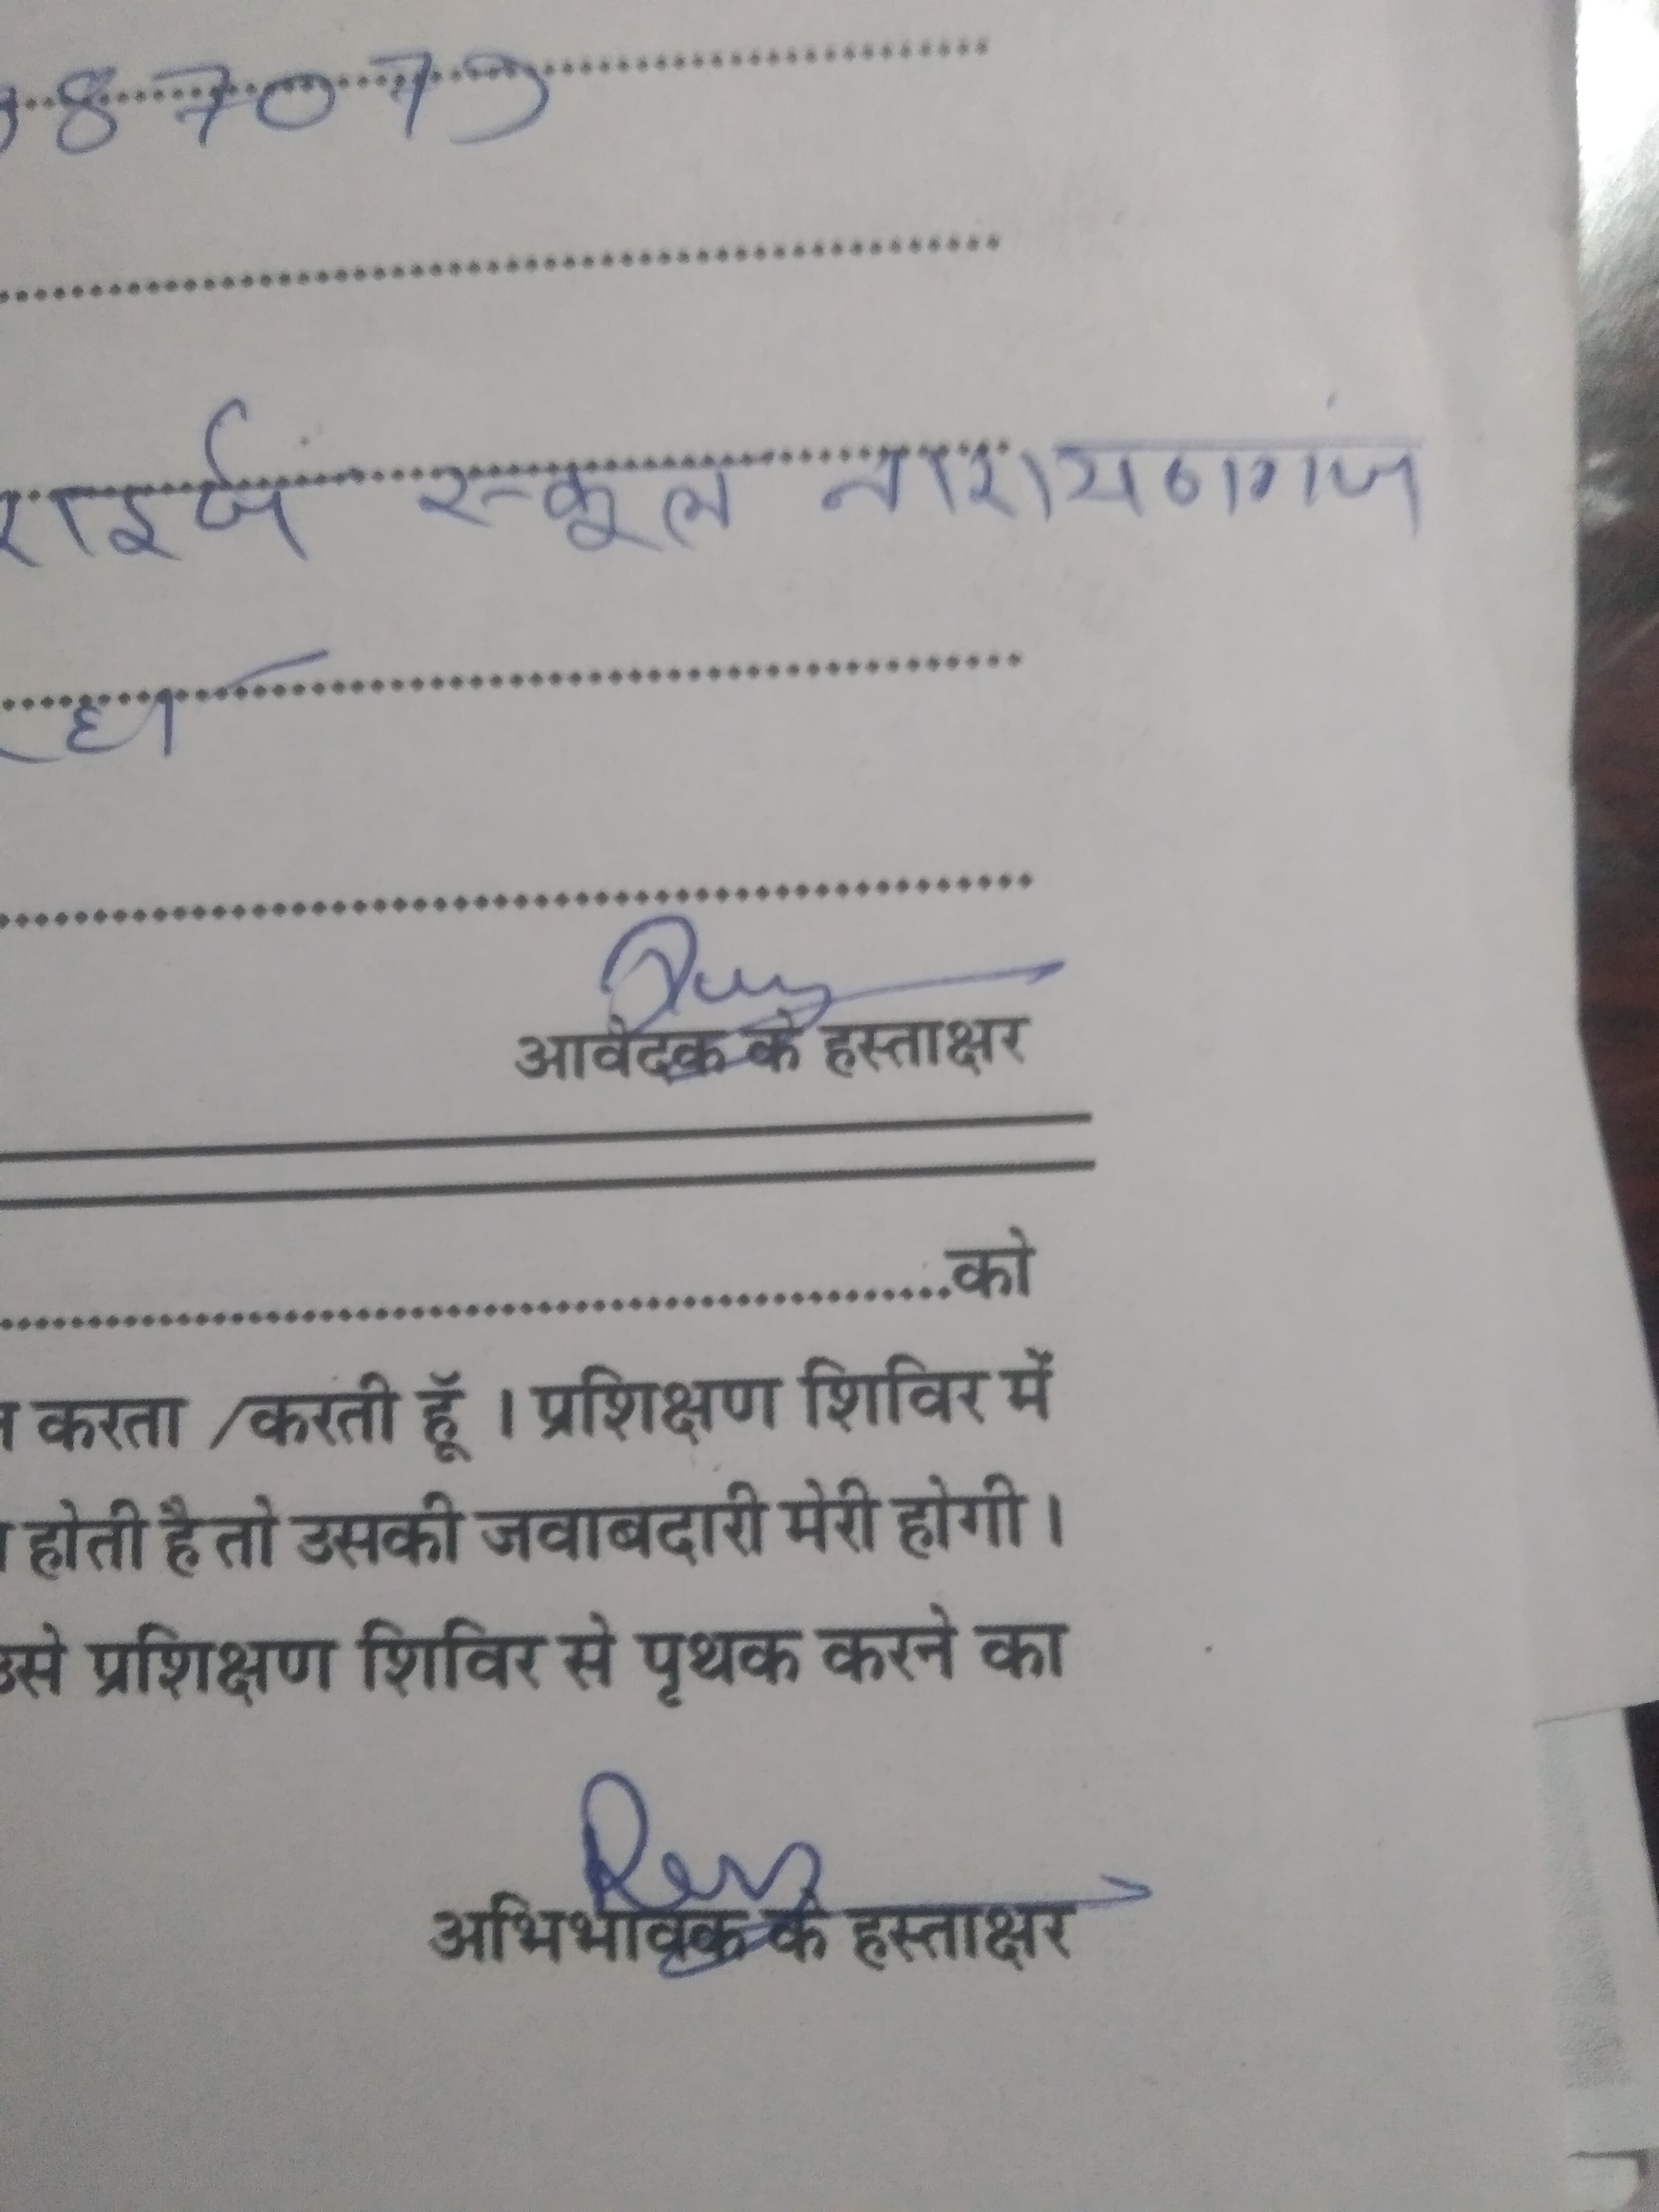 87079
राईज स्कूल नारायणगंज
आवेदक के हस्ताक्षर
को
करता /करती हूँ । प्रशिक्षण शिविर में
होती है तो उसकी जवाबदारी मेरी होगी ।
उसे प्रशिक्षण शिविर से पृथक करने का
अभिभावक के हस्ताक्षर